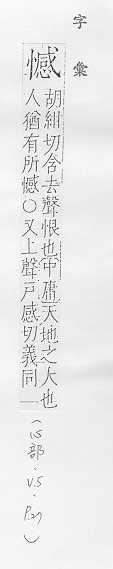 字彙
憾
胡紺切含去聲恨也中庸天地之大也
人猶有所憾○又上聲戸感切義同一
(心部·V.5·P.27)